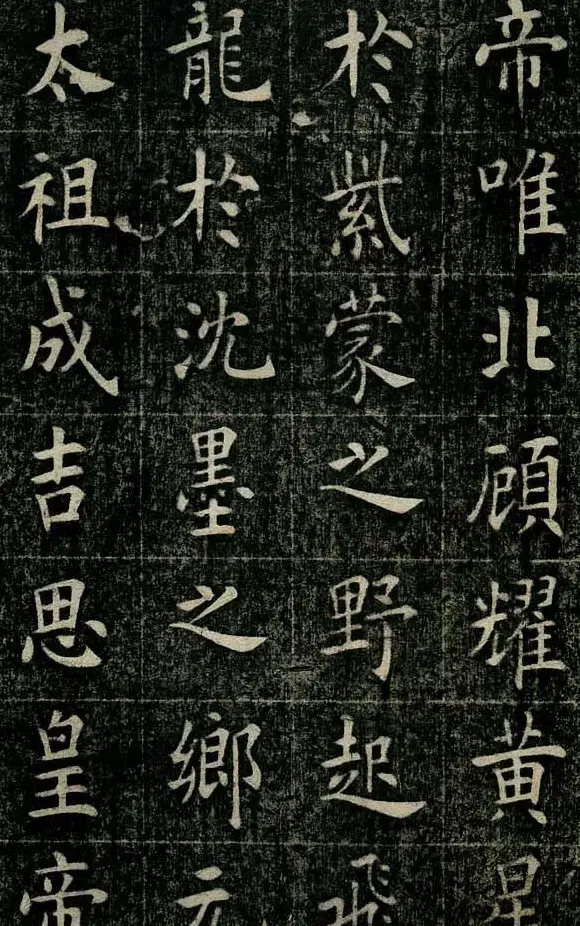 帝唯北顧耀黄星
於紫蒙之野起飛
龍於沈墨之鄉元
太祖成吉思皇帝